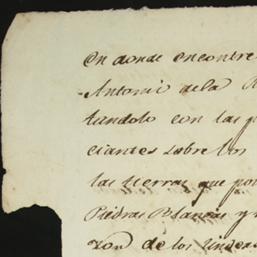 en donde encontre
Antoni de la
tandolo con las
ciantes sobre los
las tierras que po
Piedras Blancas y
zon de los linder